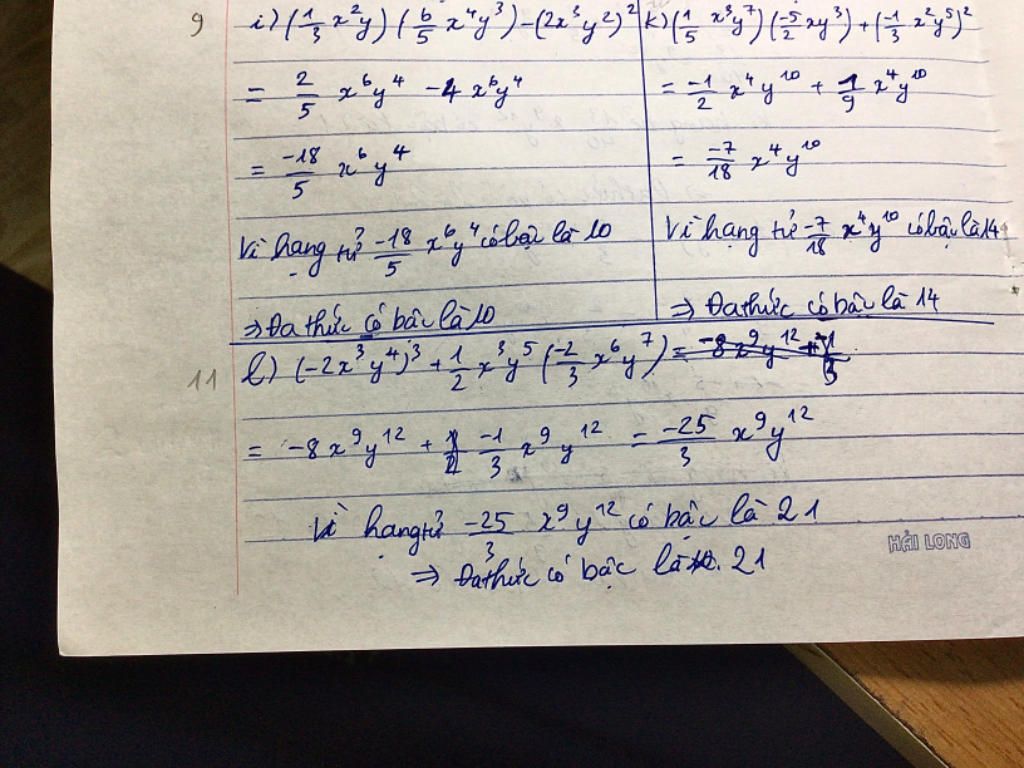 9 i) (1/3 x²y) (6/5 x⁴y³) - (2x³y²)²
= 2/5 x⁶y⁴ - 4x⁶y⁴
= -18/5 x⁶y⁴
Vì hạng tử -18/5 x⁶y⁴ có bậc là 10
⇒ Đa thức có bậc là 10
k) (1/5 x³y⁷) (-5/2 xy³) + (-1/3 x²y⁵)²
= -1/2 x⁴y¹⁰ + 1/9 x⁴y¹⁰
= -7/18 x⁴y¹⁰
Vì hạng tử -7/18 x⁴y¹⁰ có bậc là 14
⇒ Đa thức có bậc là 14
11 l) (-2x³y⁴)³ + 1/2 x³y⁵ (-2/3 x⁶y⁷) = -8x⁹y¹²
= -8x⁹y¹² + -1/3 x⁹y¹² = -25/3 x⁹y¹²
Vì hạng tử -25/3 x⁹y¹² có bậc là 21
⇒ Đa thức có bậc là 21
HẢI LONG